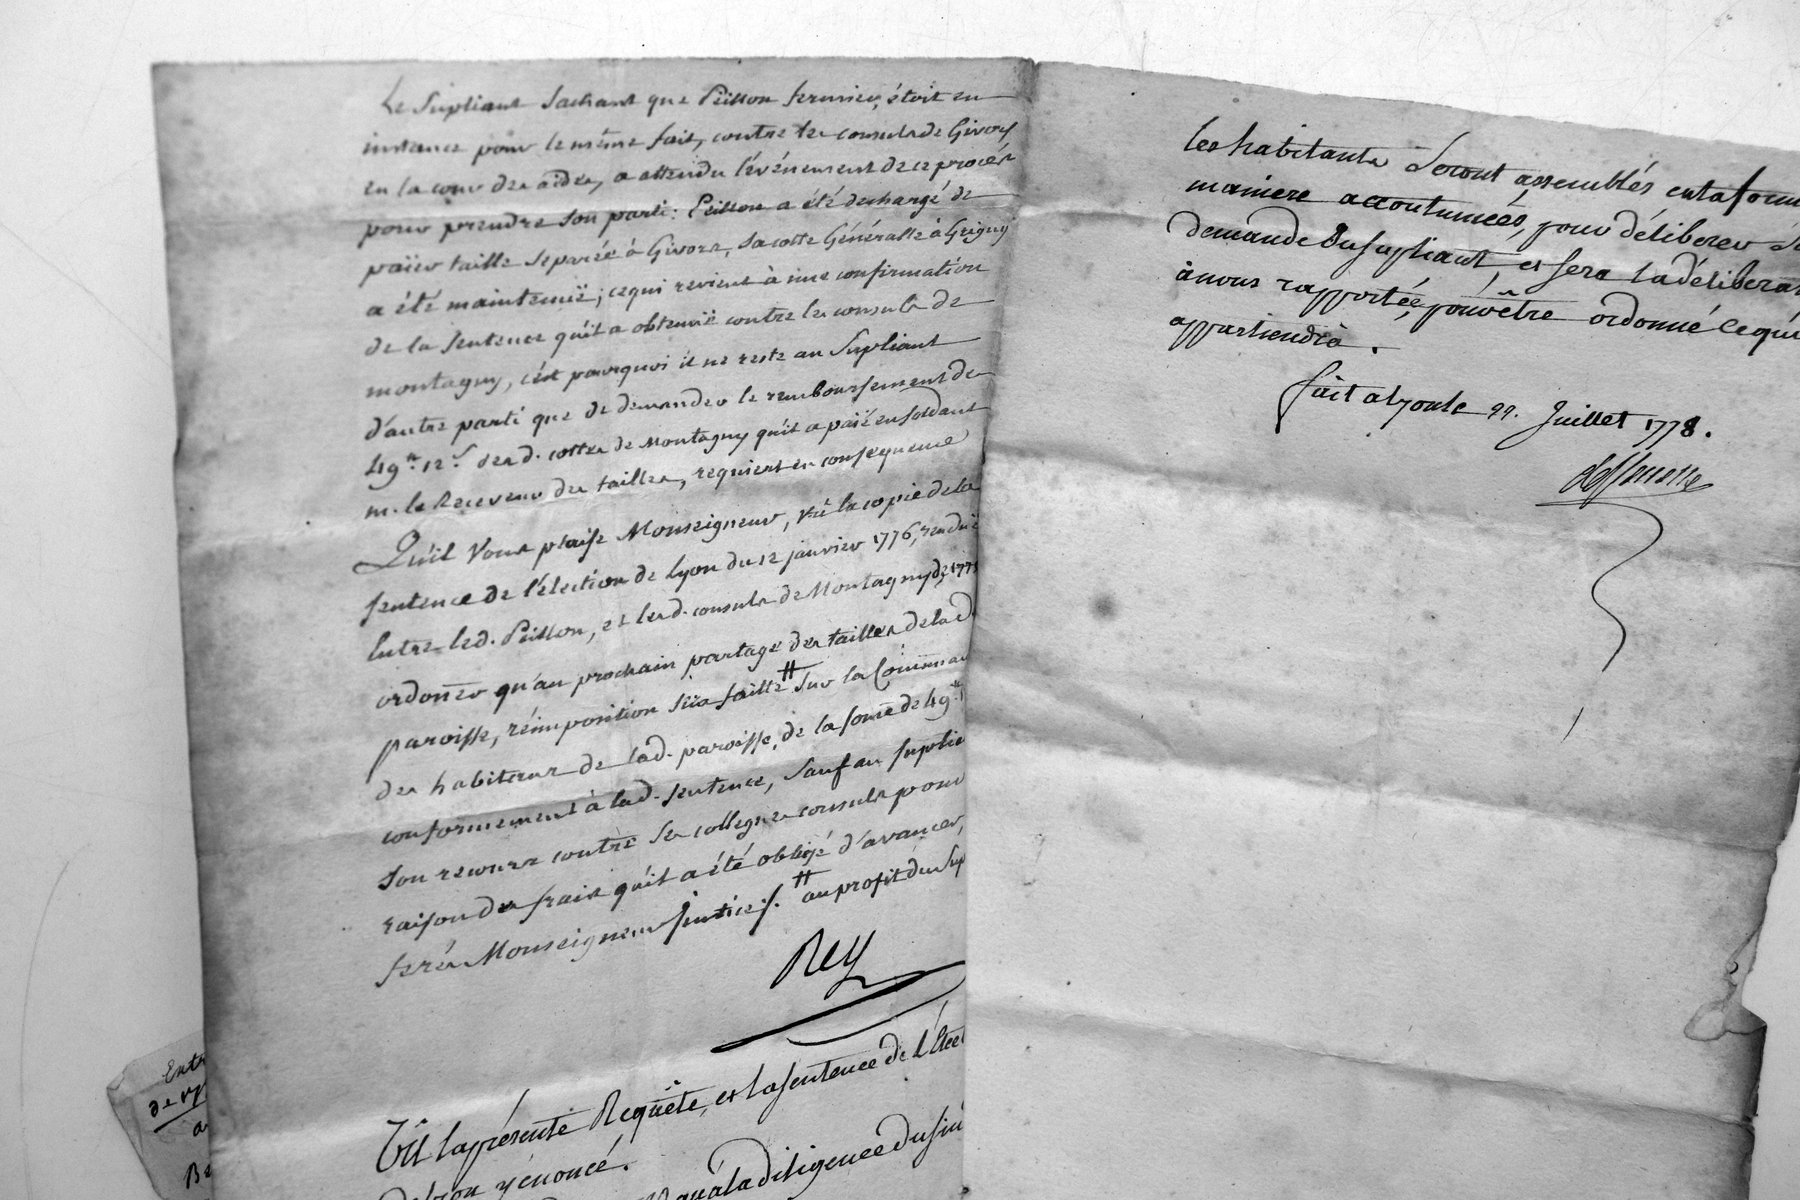 Le Supliant sachant que Peisson fermier, étoit en
instance pour le même fait, contre les consuls de Givors
en la cour des aides, a attendu l'événement de ce procés
pour prendre son parti: Peisson a été déchargé de
païer taille separée à Givors, sa cotte Généralle à Grigny
a été maintenuë; ce qui revient à une confirmation
de la sentence qu'il a obtenuë contre les consuls de
montagny, c'est pourquoi il ne reste au Supliant
d'autre parti que de demander le remboursement des
49.tt 12.s des d. cottes de Montagny qu'il a païé en soldant
m. le Receveur des tailles, requiert en consequence
Qu'il Vous plaise Monseigneur, vû la copie de la
sentence de l'élection de Lyon du 12 janvier 1776, renduë
Entre led. Peisson, et les d. consuls de Montagny de 1775
ordoner qu'au prochain partage des tailles de lad
paroisse, réimposition sera faitte # sur la Comunau
des habitans de lad. paroisse, de la some de 49.tt
conformement à lad. sentence, sauf au suplia
son recours contre ses collegues consuls pour
raison des frais qu'il a été obligé d'avancer,
ferés Monseigneur justice. # au profit du Sup
Rey
Vû la présente Requête, et la sentence de l'Elec
y énoncé.
qu'à la diligence du
les habitants seront assemblés en la forme
maniere accoutumées, pour déliberer sur
demande du supliant, et sera la déliberat
à nous rapportée, pour être ordonné ce qu'i
appartiendra.
fait à Lyon le 22. Juillet 1778.
Entr
de
a